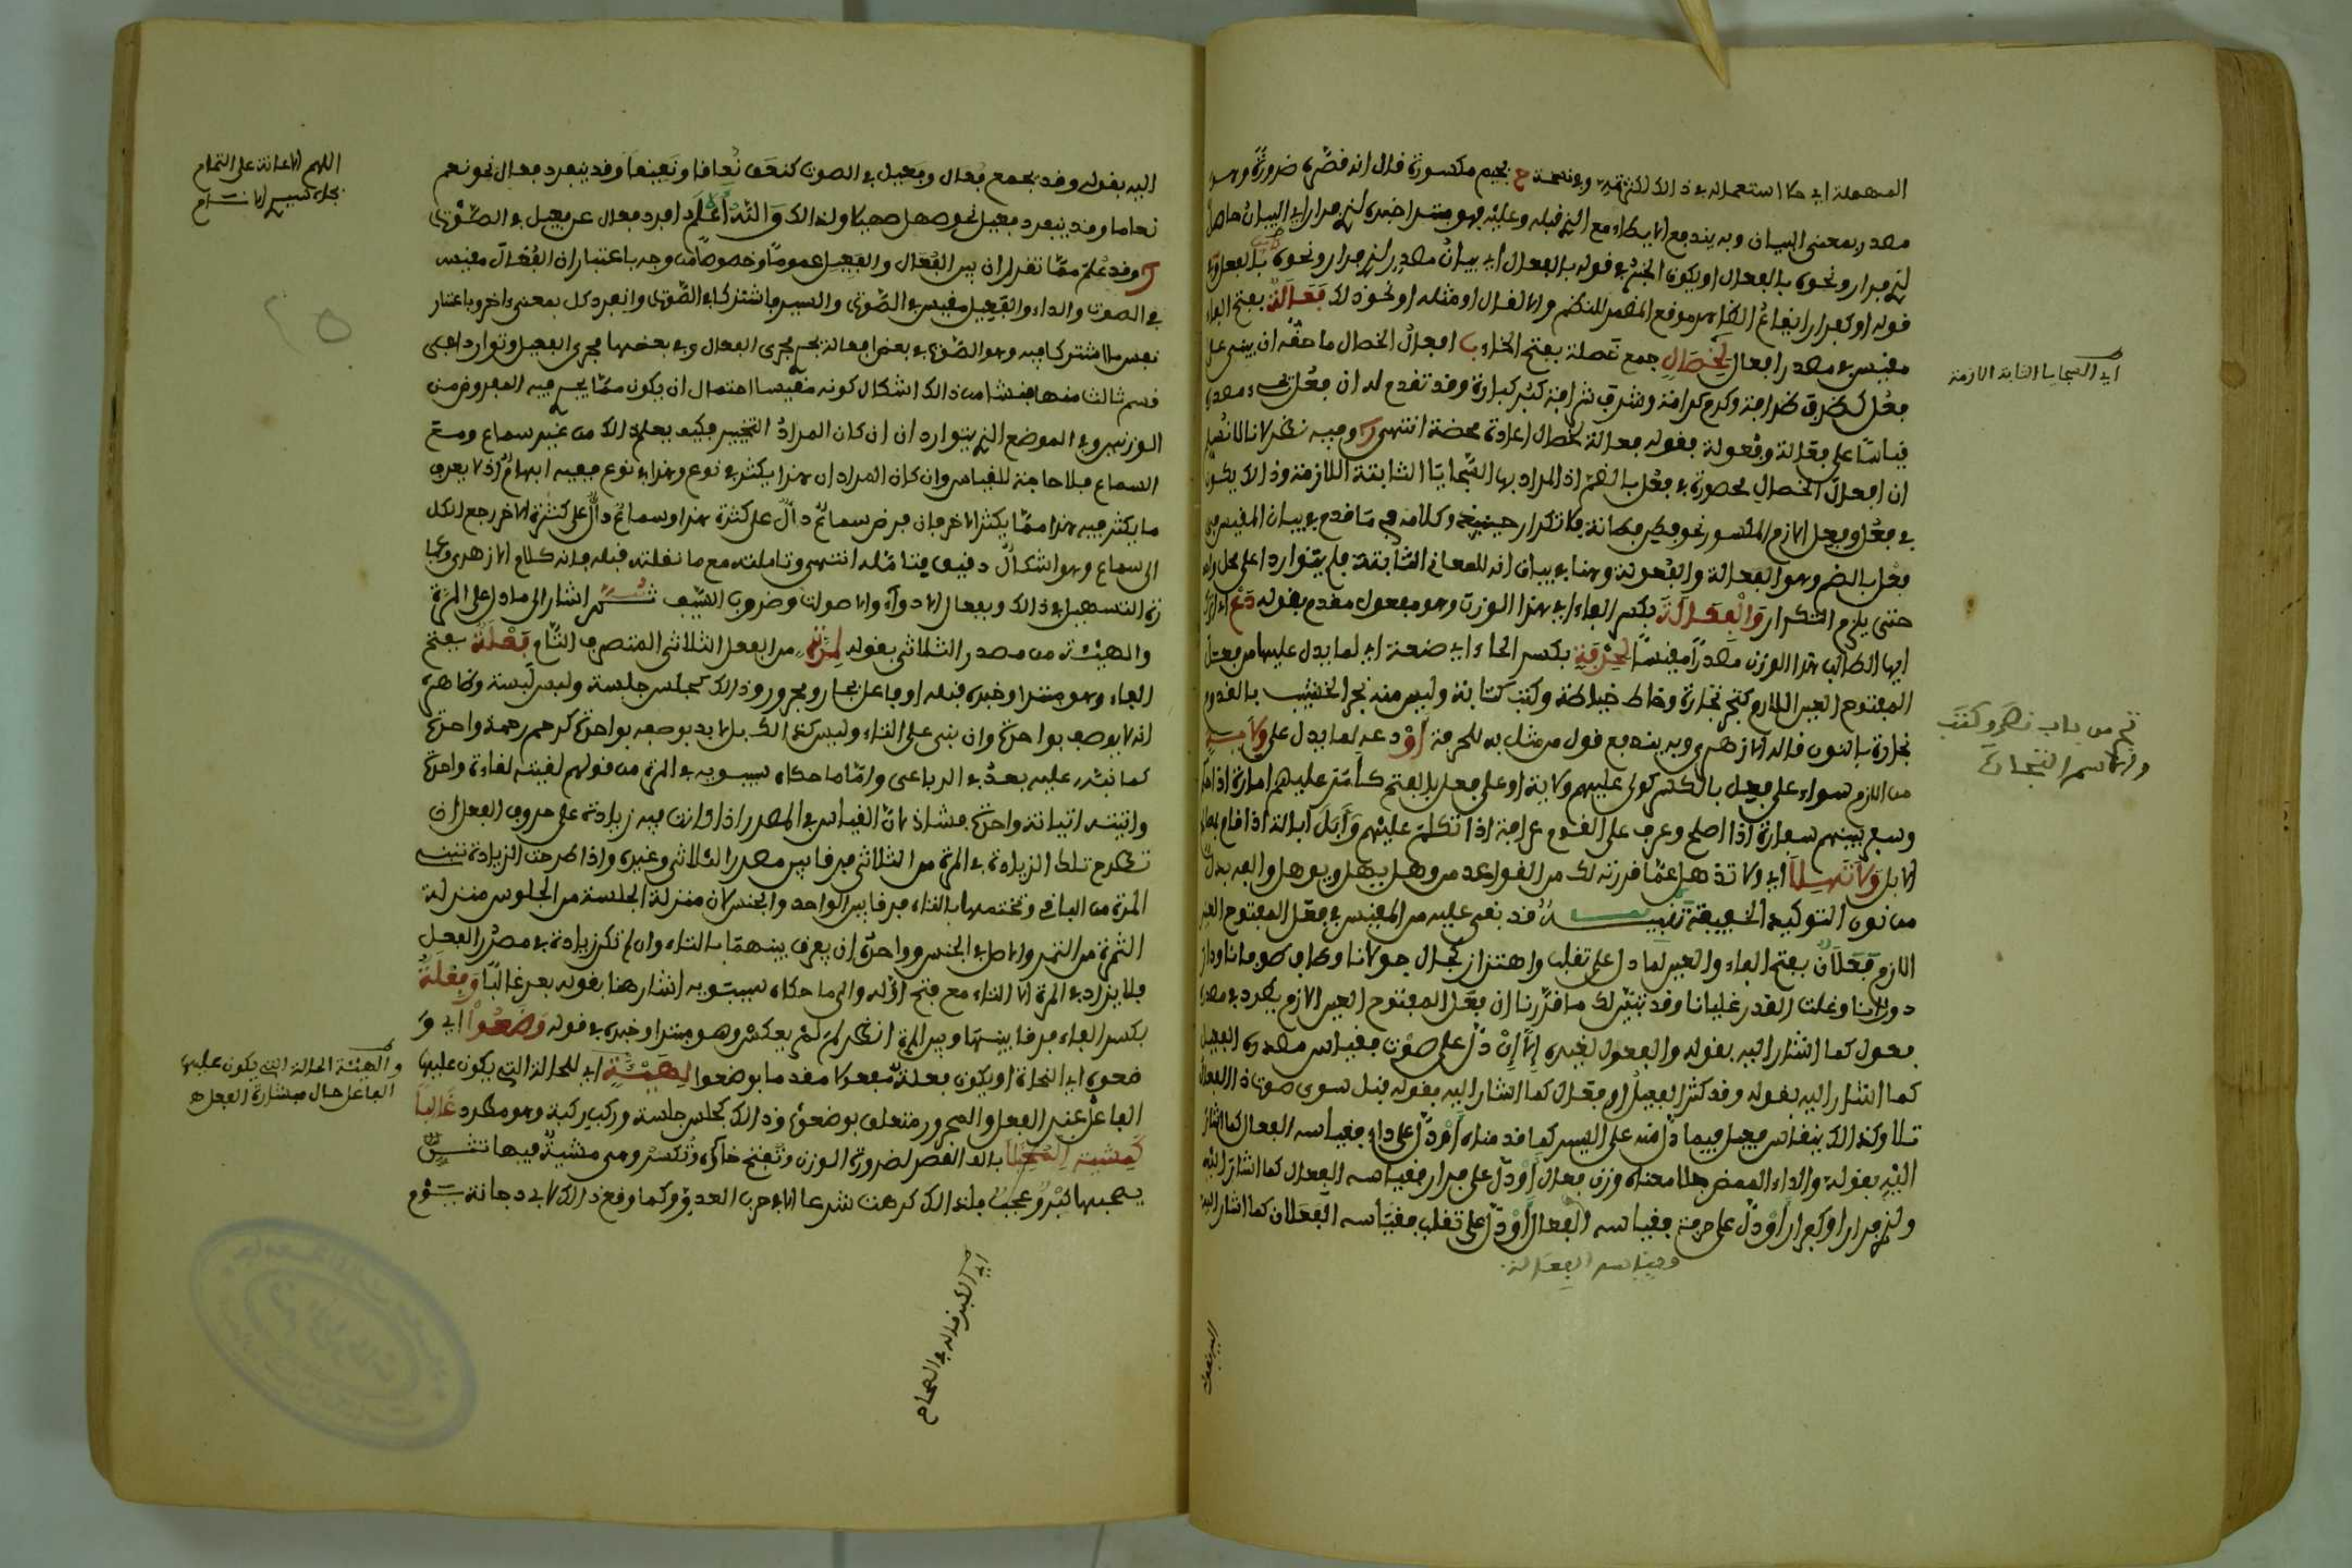 المهملة اي حال استعماله في ذالك لكثرته وفي نسخة بجيم مكسورة فال انه فصره ضرورة وهو
مصدر بمعنى البيان وبه يندفع الايطاء مع الذي فبله وعليه فهو مبتدا خبره لذي فرار اي البيان حاصل
لذي فرار ونحوه بالفعال او يكون الخبر في فوله بالفعال اي بيان مصدر لذي فرار ونحوه بالفعال
فوله او كفرار ايفاع الظاهر موفع المضمر للنظم والا لفال او مثله او نحو ذلك فَعَالَةٌ بفتح الفاء
مفيس في مصدر افعال لِخِصَالٍ جمع خصلة بفتح الخاء افعال الخصال ما حفه ان يبنى على
فعل كظرف ظرافة وكرم كرامة وشرف شرافة وفد تفدم له ان فعل يجيء مصدره
فياسا على فعالة وفعولة ففوله فعالة لخصال اعادة محضة انتهى وفيه نظر لانا لا نسلم
ان افعال الخصال محصورة في فعل بالضم اذ المراد بها السجايا الثابتة اللازمة وذالك يكون
في فعل وفعل الازم المكسور نحو فطن فطانة فلا تكرار حينئذ وكلامه فيما فدم في بيان المفيس في
فعل بالضم وهو الفعالة والفعولة وهنا في بيان انه للمعاني الثابتة فلم يتواردا على محل واحد
حتى يلزم التكرار وَالْفِعَالَةَ بكسر الفاء اي هذا الوزن وهو مفعول مفدم بفوله دَعْ اي اترك
ايها الطالب هذا الوزن مصدرا مفيسا لِحِرْفَةٍ بكسر الحاء اي صنعة اي لما يدل عليها من فعل
المفتوح العين اللازم كتجر تجارة وخاط خياطة وكتب كتابة وليس منه نجر الخشب بالفدوم
نجارة بالنون فاله الازهري وبه يندفع فول من مثل به للحرفة أوْ دعه لما يدل على وِلاَيَةٍ
من اللازم سواء على فعل بالكسر كولي عليهم ولاية او على فعل بالفتح كامر عليهم امارة اذا
وسفر بينهم سفارة اذا اصلح وعرف على الفوم عرافة اذا تكلم عليهم وأبل ابالة اذا فام بصالح
الابل وَلاَ تَهِلاَ اي ولا تذهل عما فررته لك من الفواعد من وهل يهل ويوهل والفه بدل
من نون التوكيد الخفيفة تنبيه فد بفي عليه من المفيس في فعل المفتوح العين
الازم فَعَلَانٌ بفتح الفاء والعين لما دل على تفلب واهتزاز كجال جولانا وطاف طوفانا ودار
دورانا وغلت الفدر غليانا وفد تبين لك مما فررنا ان فعل المفتوح العين الازم يطرد في مصدره
فعول كما اشار اليه بفوله والفعول لغيره إلا إنْ دل على صوت ففياس مصدره الفعيل
كما اشار اليه بفوله وفد كثر الفعيل او فعال كما اشار اليه بفوله فبل سوى صوت ذا الفعال
تلا وكذالك ينفاس فعيل فيما دل منه على السير كما فدمناه أو دل على داء ففياسه الفعال كما اشار
اليه بفوله والداء الممض هلا معناه وزن فعال أو دل على فرار ففياسه الفعال كما اشار اليه
ولذي فرار او كفرار أو دل على حرفة ففياسه الفعالة أو دل على تفلب ففياسه الفعلان كما اشار اليه
وفياسه الفعالة
اي السجايا الثابتة الازمة
نجر من باب نصر وكتب
والاسم النجارة
اليه بفوله وفد يجمع فعال وفعيل في الصوت كنعف نعافا ونعيفا وفد ينفرد فعال نحو نعم
نعاما وفد ينفرد فعيل نحو صهل صهيلا ولذالك والله أعلم افرد فعال عن فعيل في الصوت
وفد علم مما تفرر ان بين الفعال والفعيل عموما وخصوصا من وجه باعتبار ان الفعال مفيس
في الصوت والداء والفعيل مفيس في الصوت والسير فاشتركا في الصوت وانفرد كل بمعنى اخر وباعتبار
نفس ما اشتركا فيه وهو الصوت في بعض افعاله يجري مجرى الفعال وفي بعضها مجرى الفعيل وتواردا في
فسم ثالث منها فنشا من ذالك اشكال كونه مفيسا احتمال ان يكون مما يجري فيه المفروض من
الوزنين وفي الموضع الذي يتواردان ان كان المراد التخيير فكيف يعلم ذالك من غير سماع ومع
السماع فلا حاجة للفياس وان كان المراد ان هذا يكثر في نوع وهذا في نوع ففيه ابهام اذ لا يعرف
ما يكثر فيه هذا مما يكثر الاخر فان فرض سماع دال على كثرة هذا وسماع دال على كثرة الاخر رجع الكل
الى سماع وهو اشكال دفيق فتامله انتهى وتاملته مع ما نفلته فبله فانه كلام الازهري
زاد التسهيل في ذالك وبفعال الادواء والاصوات وضروب السيف ثم اشار الى ما دل على المرة
والهيئة من مصدر الثلاثي بفوله لِمَرَّةٍ من الفعل الثلاثي المتصرف التام فَعْلَةٌ بفتح
الفاء وهو مبتدا وخبره فبله او فاعل بجار ومجرور وذالك كجلس جلسة ولبس لبسة وظاهره
انه لا يوصف بواحدة وان بني على التاء وليس كذالك بل لا بد بوصفه بواحدة كرحم رحمة واحدة
كما نبه عليه بعد في الرباعي واما ما حكاه سيبويه في المرة من فولهم لفيته لفاءة واحدة
واتيته اتيانة واحدة فشاذ لان الفياس في المصدر اذا كانت فيه زيادة على حروف الفعل ان
تطرح تلك الزيادة في المرة من الثلاثي فرفا بين مصدر الثلاثي وغيره واذا طرحت الزيادة تبنى
المرة من الباقي وتختمها بالتاء فرفا بين الواحد والجنس لان منزلة الجلسة من الجلوس منزلة
الثمرة من الثمر والاصل في الجنس وواحده ان يفرف بينهما بالتاء وان لم تكن زيادة في مصدر الفعل
فلا يزاد في المرة الا التاء مع فتح اوله والى ما حكاه سيبويه اشار هنا بفوله بعد غالبا وَفِعْلَةٌ
بكسر الفاء فرفا بينها وبين المرة انظر لم لم يعكس وهو مبتدا وخبره في فوله وَضَعُوا اي و
ضعوه اي النحاة او يكون بفعلة مفعولا مفدما بوضعوا لِهَيْئَةٍ اي للحالة التي يكون عليها
الفاعل عند الفعل والمجرور متعلق بوضعوا وذالك كجلس جلسة وركب ركبة وهو مطرد غَالِبًا
كَمِشْيَةِ الْخُيَلَا بالف الفصر لضرورة الوزن وتفتح خاؤه وتكسر وهي مشية فيها
يصحبها كبر وعجب فلذالك كرهت شرعا الا في حرب العدو وكما وفع ذالك لابي دجانة يوم
اللهم الاعانة على التمام
والهيئة الحالة التي يكون عليها
الفاعل حال مباشرة الفعل ه
اي الكبر فاله في الصحاح